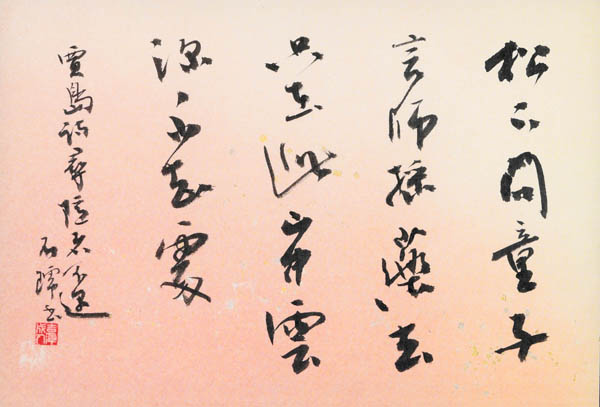 松下問童子
言師採藥去
只在此山中雲
深不知處
賈島詩尋隱者不遇
石 書